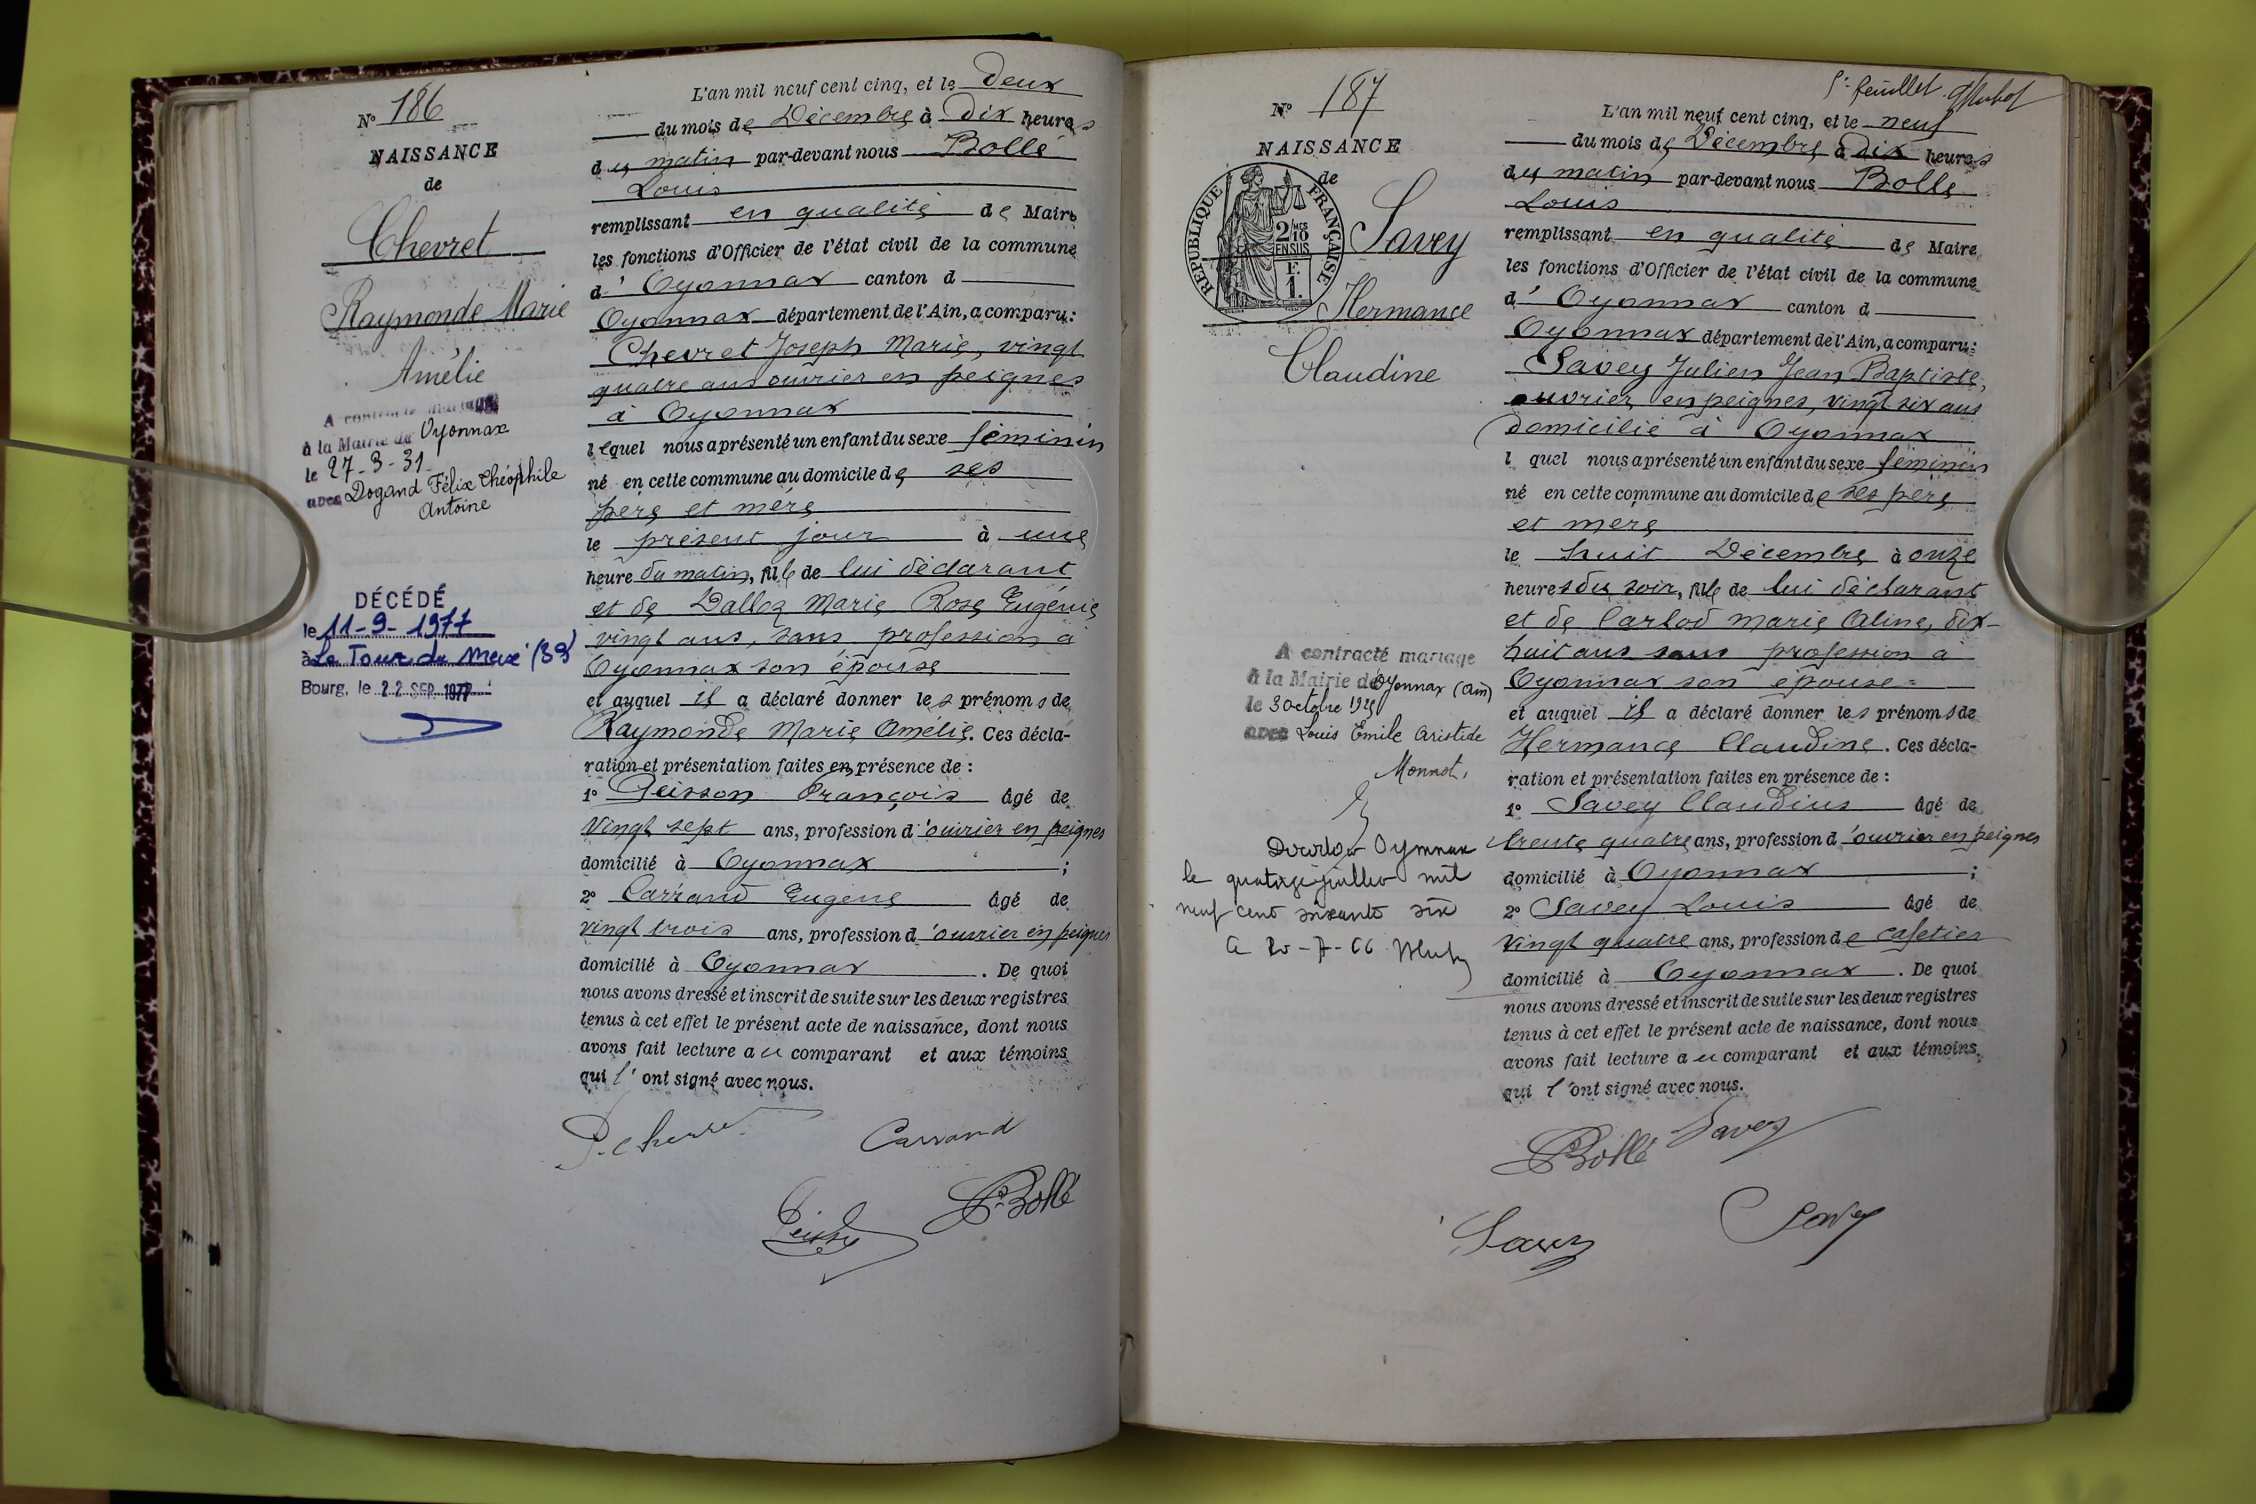 N° 186
NAISSANCE
de
Chevret
Raymonde Marie
Amélie
A contracté mariage
à la Mairie de Oyonnax
le 27-3-31
avec Dogand Félix Théophile
Antoine
DÉCÉDÉ
le 11-9-1977
à La Tour du Meix (39)
Bourg, le 22 SEP. 1977
L'an mil neuf cent cinq, et le deux
du mois de Décembre à Dix heures
du matin par-devant nous Bollé
Louis
remplissant en qualité de Maire
les fonctions d'Officier de l'état civil de la commune
d' Oyonnax canton d
Oyonnax département de l'Ain, a comparu:
Chevret Joseph Marie, vingt
quatre ans ouvrier en peignes
à Oyonnax
lequel nous a présenté un enfant du sexe féminin
né en cette commune au domicile de ses
père et mère
le présent jour à une
heure du matin, fille de lui déclarant
et de Dalloz Marie Rose Eugénie
vingt ans, sans profession à
Oyonnax son épouse
et auquel il a déclaré donner les prénoms de
Raymonde Marie Amélie. Ces décla-
ration et présentation faites en présence de:
1° Peisson François âgé de
Vingt sept ans, profession d'ouvrier en peignes
domicilié à Oyonnax ;
2° Carrand Eugène âgé de
vingt trois ans, profession d'ouvrier en peignes
domicilié à Oyonnax. De quoi
nous avons dressé et inscrit de suite sur les deux registres
tenus à cet effet le présent acte de naissance, dont nous
avons fait lecture au comparant et aux témoins
qui l'ont signé avec nous.
Carrand
Bollé
5e feuillet
N° 187
NAISSANCE
de
RÉPUBLIQUE FRANÇAISE
2/10 MES
EN SUS
F.
1.
Savey
Hermance
Claudine
A contracté mariage
à la Mairie de Oyonnax (Ain)
le 3 octobre
avec Louis Emile Aristide
Monnot.
Oyonnax
le quatorze juillet mil
neuf cent soixante six
L'an mil neuf cent cinq, et le neuf
du mois de Décembre à Dix heures
du matin par-devant nous Bolle
Louis
remplissant en qualité de Maire
les fonctions d'Officier de l'état civil de la commune
d' Oyonnax canton d
Oyonnax département de l'Ain, a comparu:
Savey Julien Jean Baptiste,
ouvrier en peignes, vingt six ans
domicilié à Oyonnax
l quel nous a présenté un enfant du sexe féminin
né en cette commune au domicile de ses père
et mère
le huit Décembre à onze
heures du soir, fille de lui déclarant
et de Carlod Marie Aline, dix-
huit ans sans profession à
Oyonnax son épouse
et auquel il a déclaré donner les prénoms de
Hermance Claudine. Ces décla-
ration et présentation faites en présence de:
1° Savey Claudius âgé de
trente quatre ans, profession d'ouvrier en peignes
domicilié à Oyonnax ;
2° Savey Louis âgé de
Vingt quatre ans, profession de cafetier
domicilié à Oyonnax. De quoi
nous avons dressé et inscrit de suite sur les deux registres
tenus à cet effet le présent acte de naissance, dont nous
avons fait lecture au comparant et aux témoins,
qui l'ont signé avec nous.
Bollé Savey
Savey